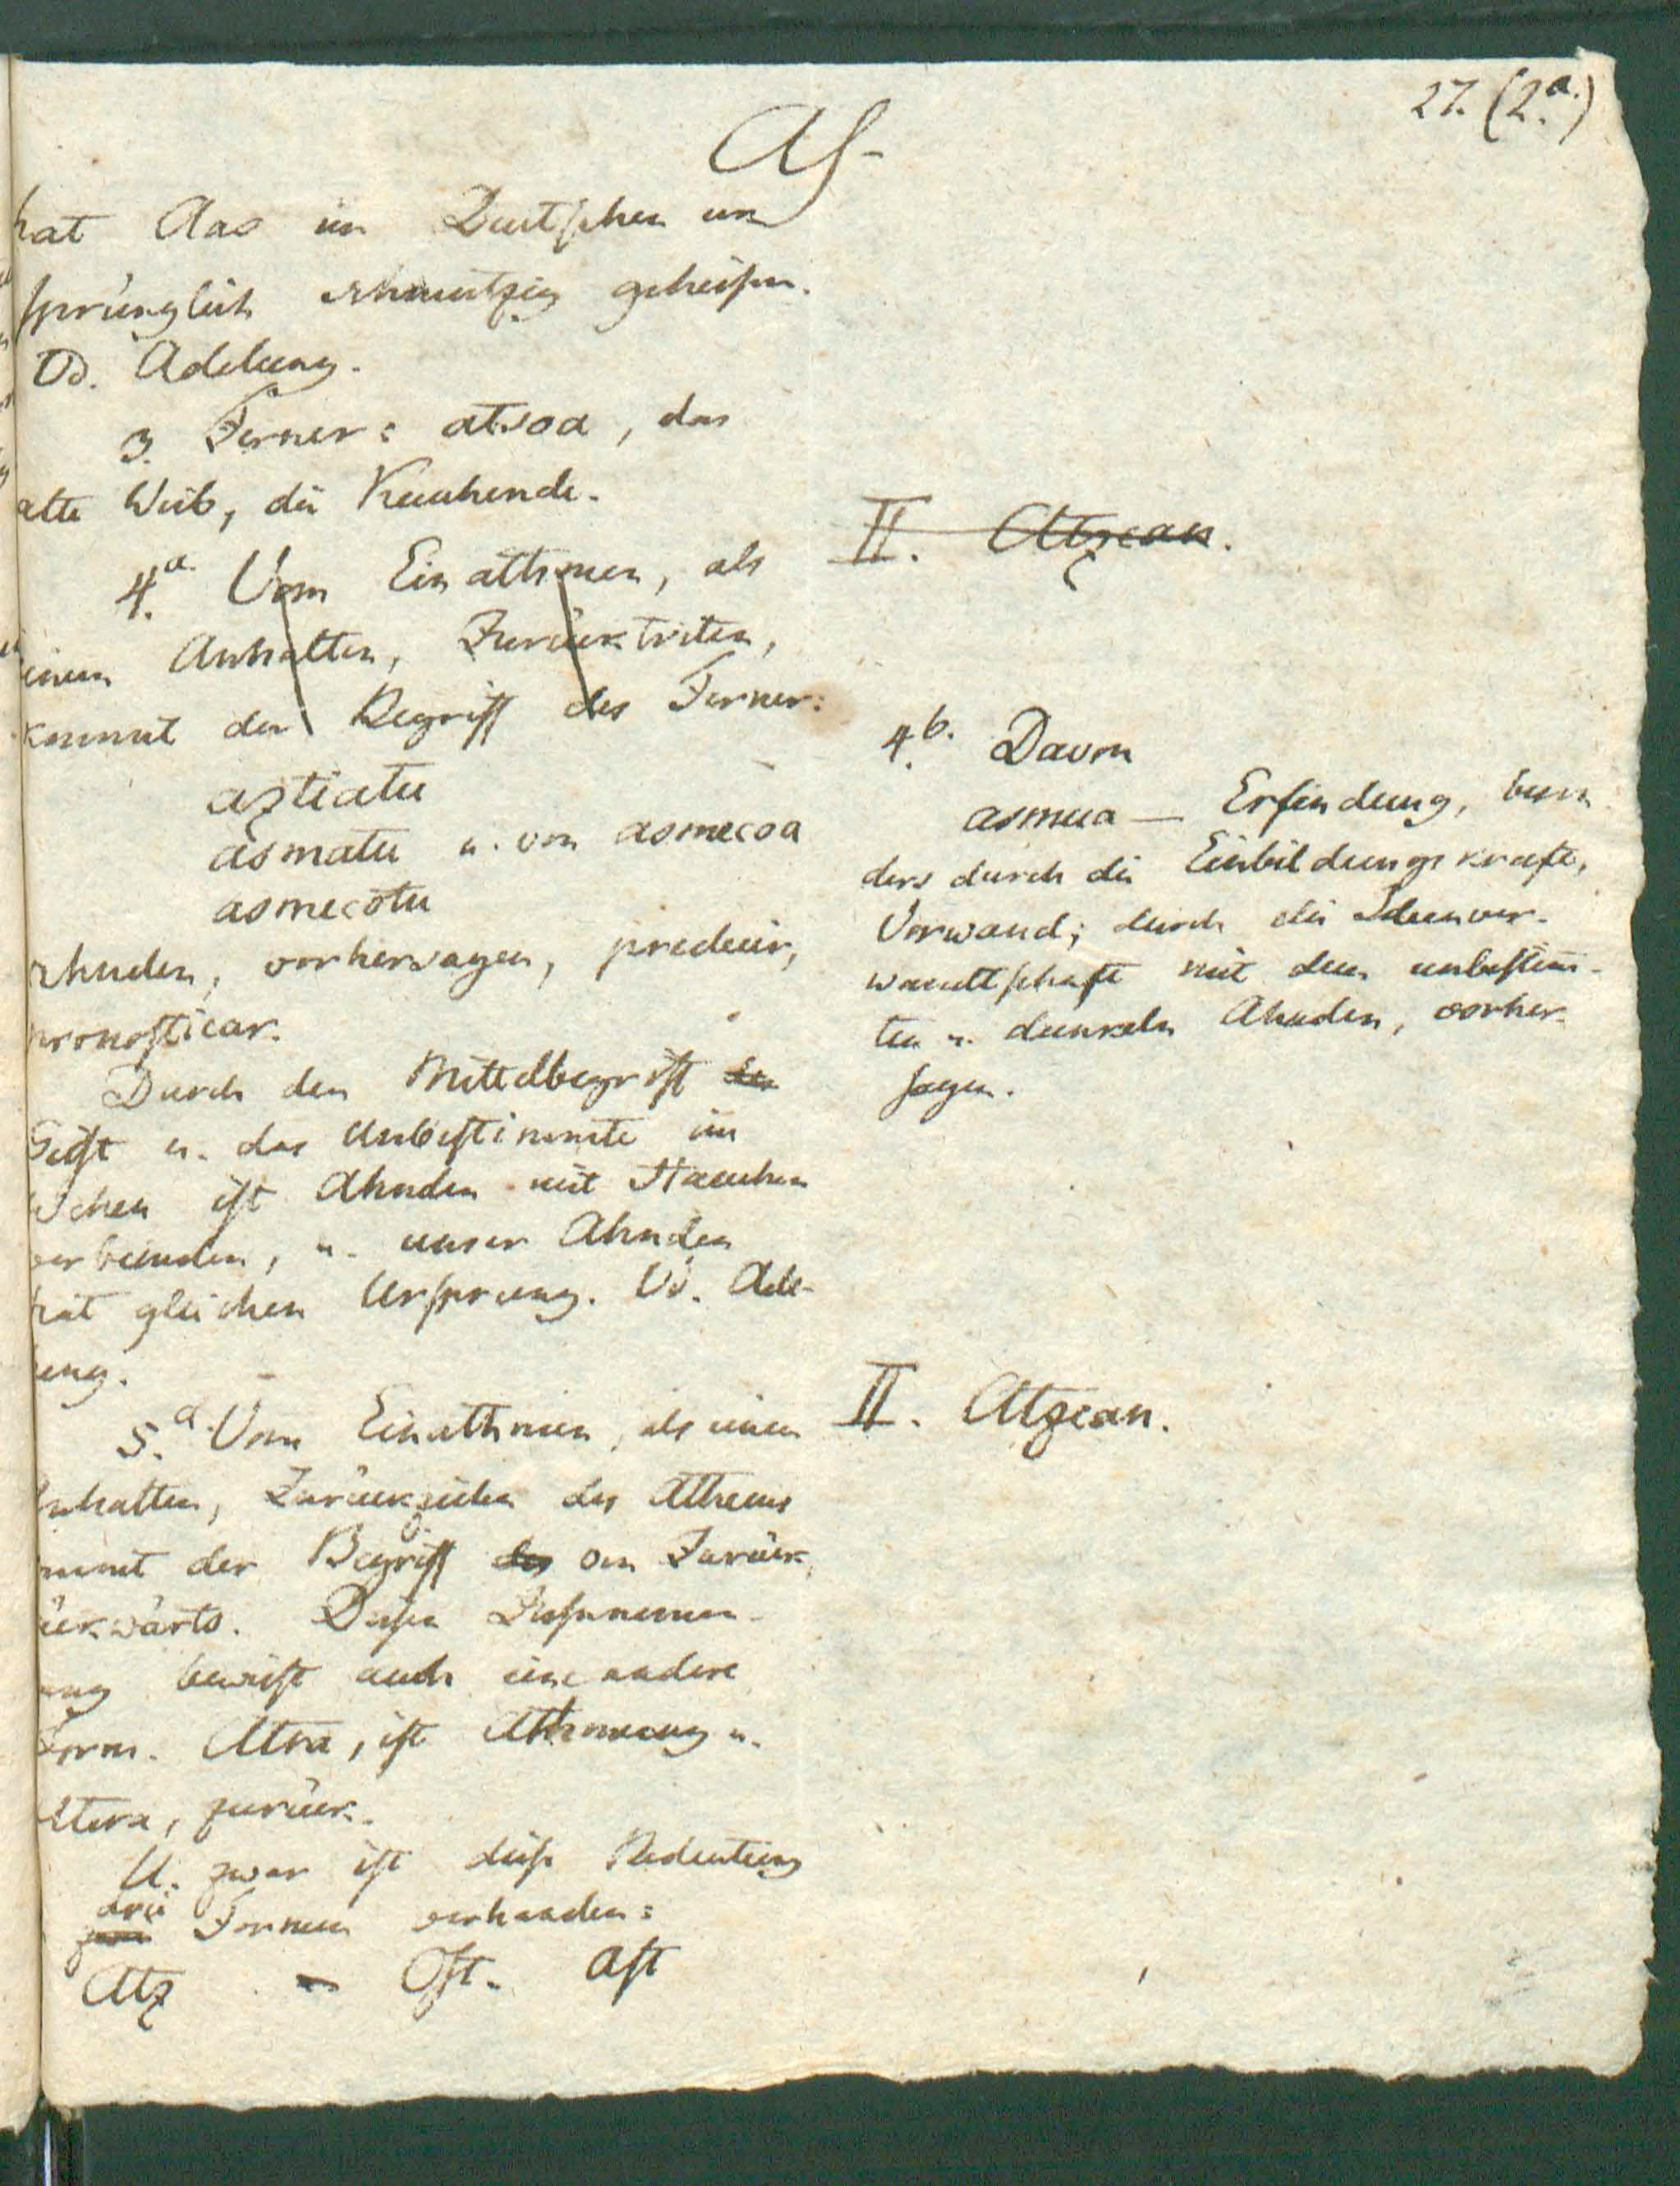 27. (2.a)
As-
hat Aas im Deutschen ur
sprünglich schmutzig geheissen.
Vd. Adelung.
3. Ferner: atsoa, das
alte Weib, die Keuchende.
4.a Vom Einathmen, als
einem Anhalten, Zurücktreten,
kommt der Begriff des Ferner:
aztiatu
asmatu u. von asmecoa
asmecotu
ahnden, vorhersagen, predecir,
pronosticar.
Durch den Mittelbegriff den
Geist u. das Unbestimmte im
ist Ahnden mit Hauchen
verbunden, u. unser Ahnden
hat gleichen Ursprung. Vd. Ade-
lung.
5.a Vom Einathmen, als einem
Anhalten, Zurückziehen des Athems
kommt der Begriff des von Zurück,
rückwärts. Diesen Zusammen-
hang beweist auch eine andere
Form. Atsa, ist Athmung u.
atera, zurück.
U. zwar ist diese Bedeutung
drei Formen vorhanden:
Atz - Ost. Ast
II. Atzean.
4.b. Davon
asmua — Erfindung, beson
ders durch die Einbildungskraft,
Vorwand; durch die Ideenver-
wandtschaft mit dem unbestimm-
ten u. dunkeln Ahnden, vorher-
sagen.
II. Atzean.